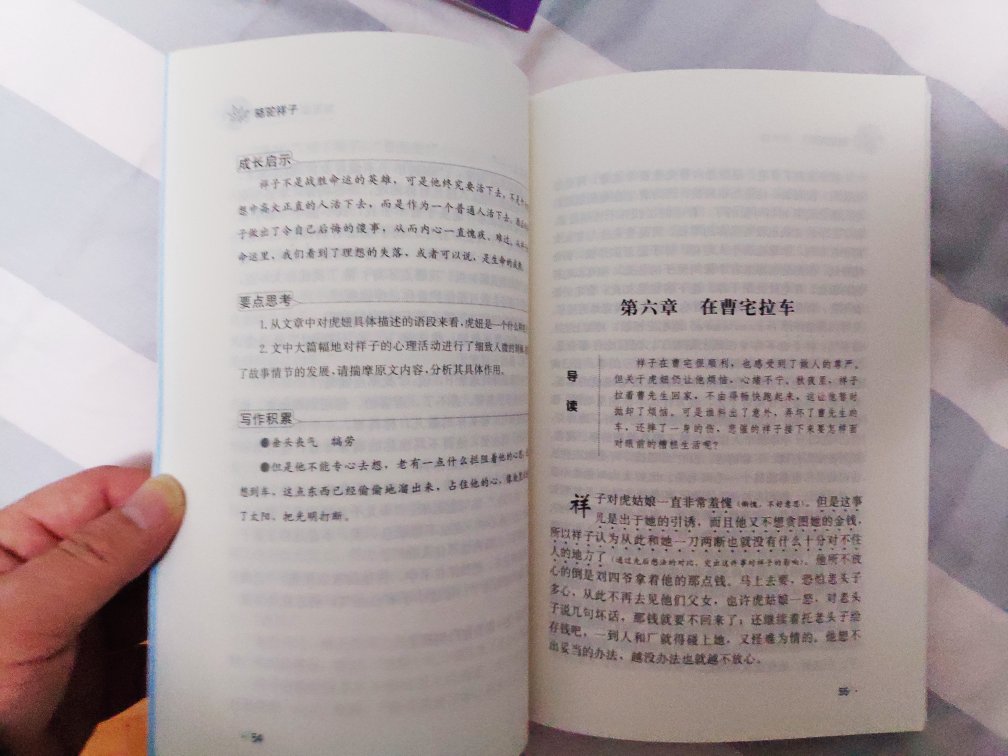 骆驼祥子
成长启示
祥子不是战胜命运的英雄，可是他终究要活下去，不是
想中高大正直的人活下去，而是作为一个普通人活下去。
子做出了令自己后悔的傻事，从而内心一直愧疚、难过。
命运里，我们看到了理想的失落，或者可以说，是生命的
要点思考
1.从文章中对虎妞具体描述的语段来看，虎妞是一个什么
2.文中大篇幅地对祥子的心理活动进行了细致入微的
了故事情节的发展，请揣摩原文内容，分析其具体作用。
写作积累
●垂头丧气　犒劳
●但是他不能专心去想，老有一点什么拦阻着他的心思
想到车，这点东西已经偷偷地溜出来，占住他的心，
了太阳，把光明打断。
· 54
第六章　在曹宅拉车
导读
祥子在曹宅很顺利，也感受到了做人的尊严。
但关于虎妞仍让他烦恼，心绪不宁。秋夜里，祥子
拉着曹先生回家，不由得畅快跑起来，这让他暂时
抛却了烦恼。可是谁料出了意外，弄坏了曹先生的
车，还摔了一身的伤，悲催的祥子接下来要怎样面
对眼前的糟糕生活呢？
祥子对虎姑娘一直非常羞愧（惭愧，不好意思）。但是这事
儿是出于她的引诱，而且他又不想贪图她的金钱，
所以祥子认为从此和她一刀两断也就没有什么十分对不住
人的地方了（通过先后想法的对比，突出这件事对祥子的影响）。他所不放
心的倒是刘四爷拿着他的那点钱。马上去要，恐怕老头子
多心，从此不再去见他们父女，也许虎姑娘一怒，对老头
子说几句坏话，那钱就要不回来了；还继续着托老头子给
存钱吧，一到人和厂就得碰上她，又怪难为情的。他想不
出妥当的办法，越没办法也就越不放心。
55 ·